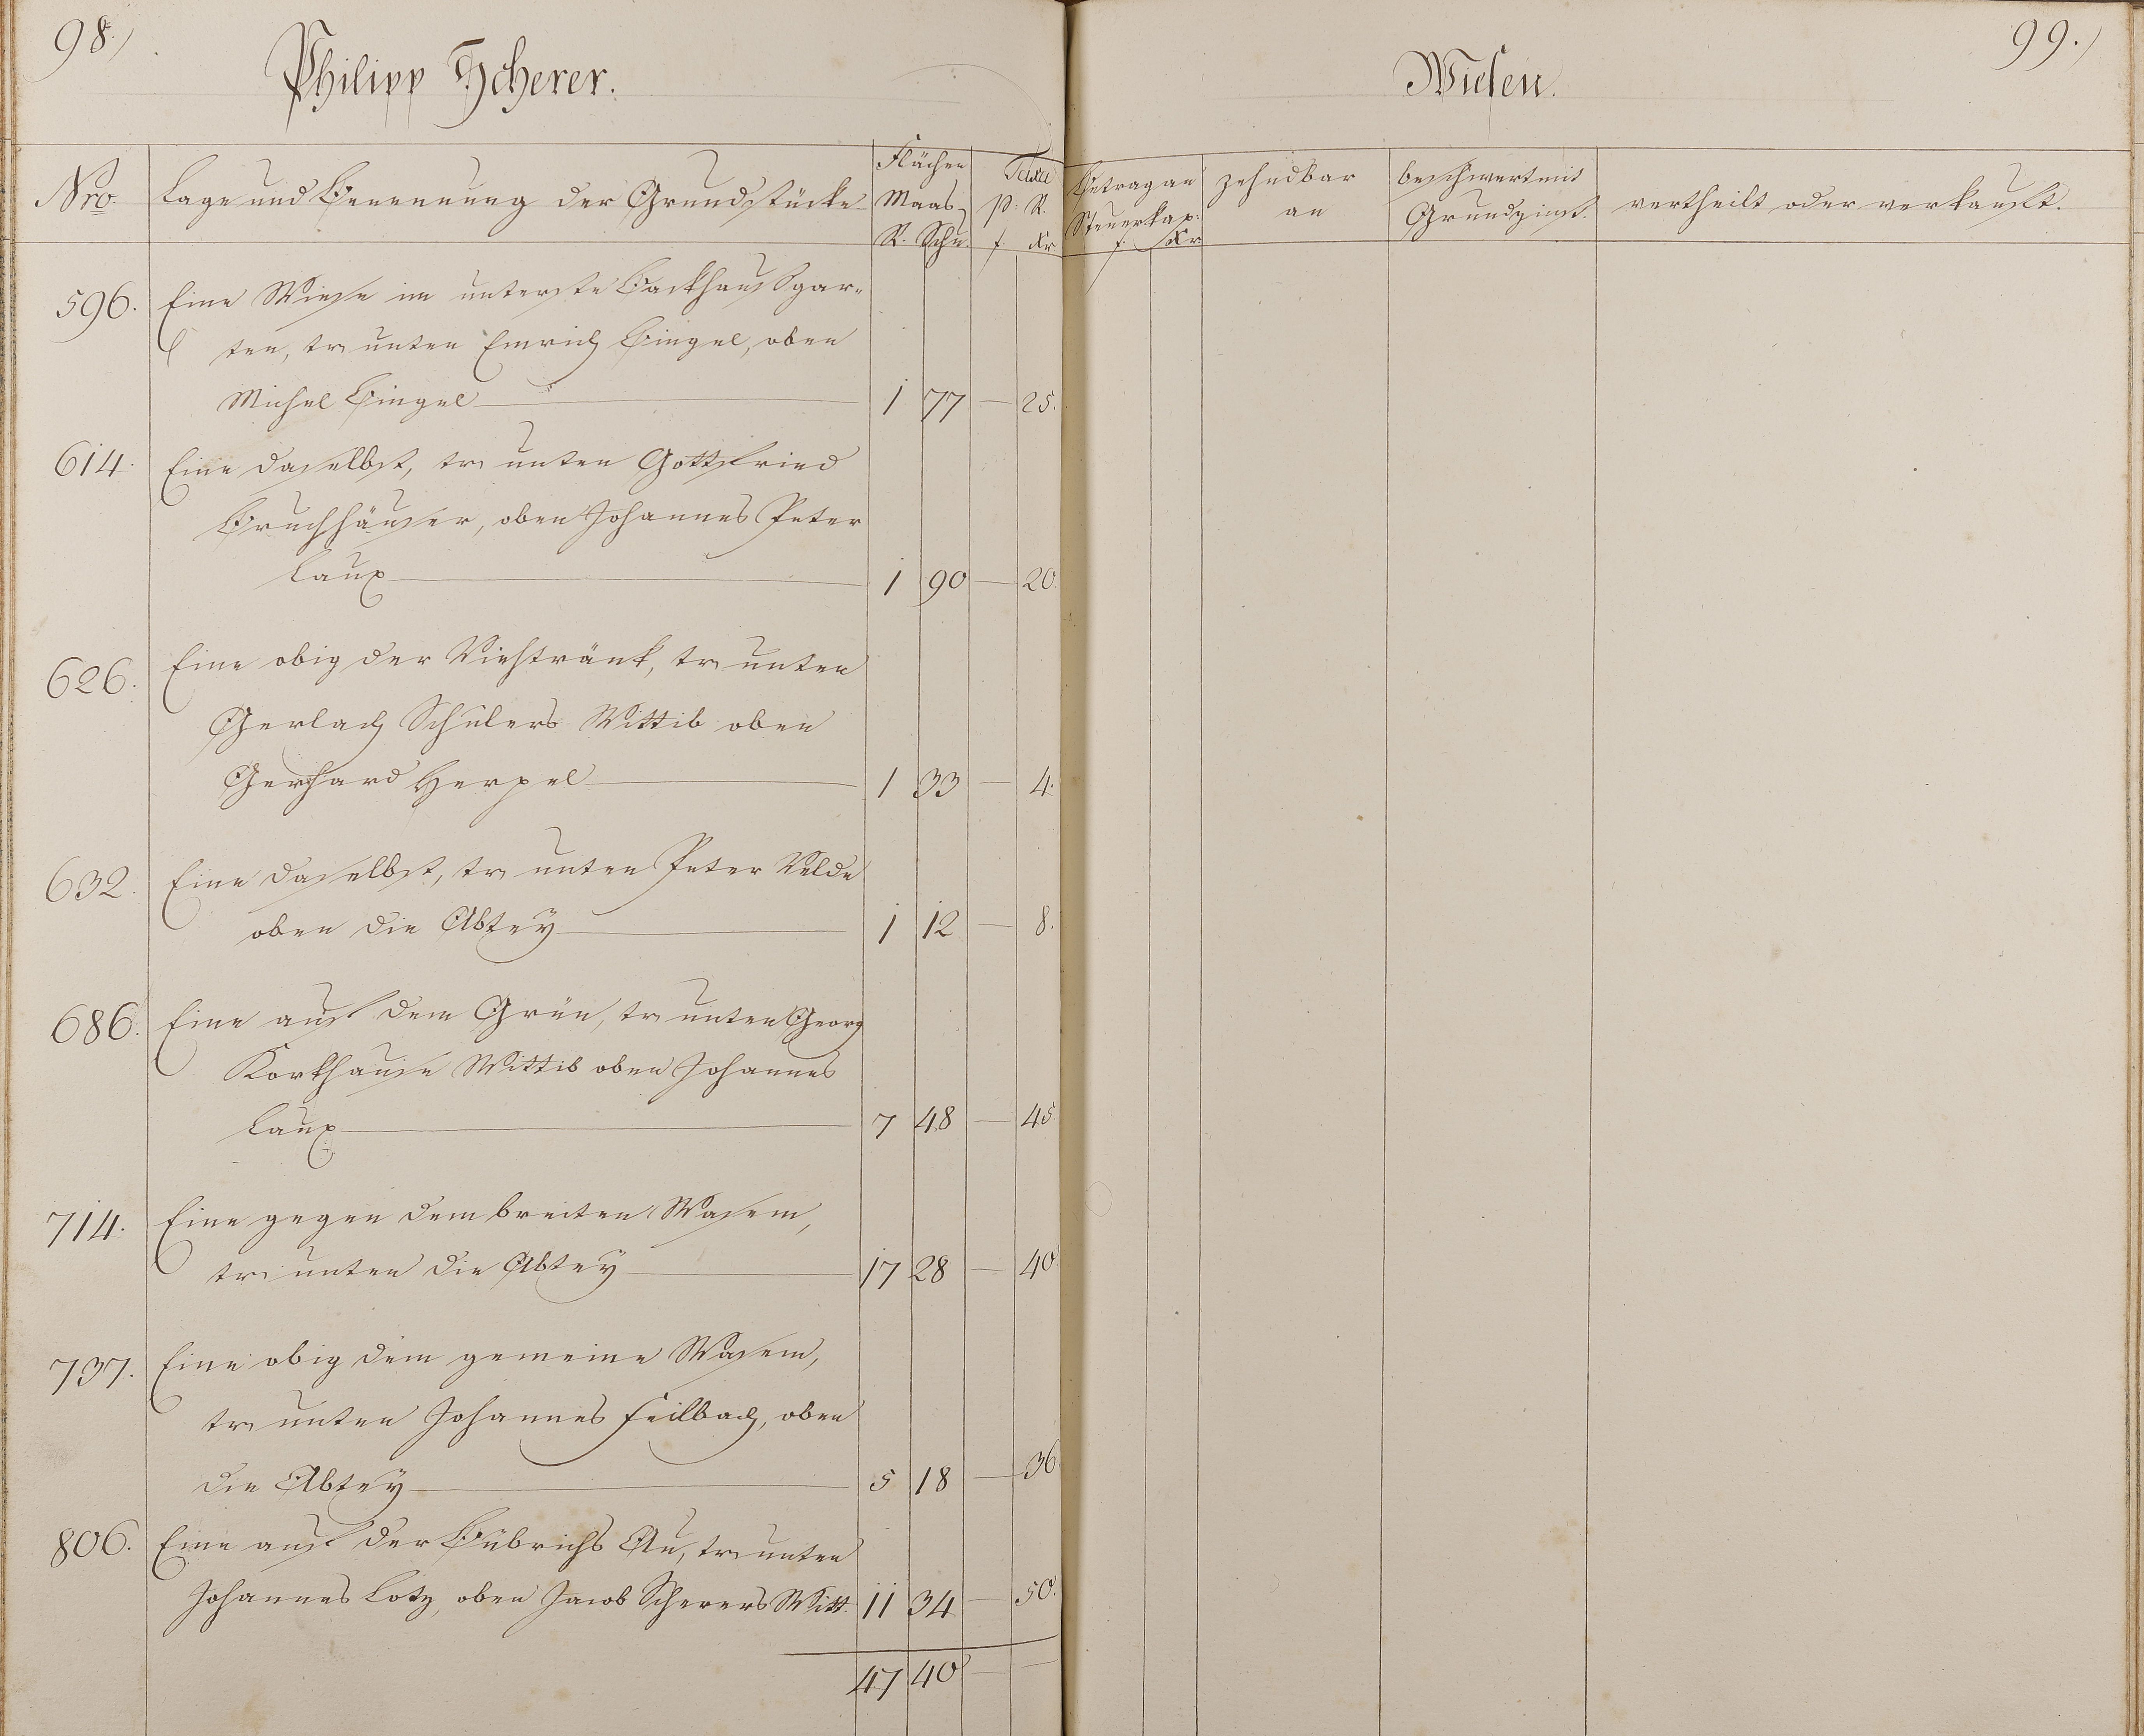 98.)
Philipp Scherer.
Nro.
Lage und Benennung der Grundstücke
Flächen
Maas
R. Schu.
Taxa
p: R.
f. Xr
596. Eine Wiese im unterste Backhaußgar-
ten, tr. unten Emrich Bingel, oben
Michel Bingel 1 77 — 25.
614. Eine daselbst, tr. unten Gottfried
Bruchhäuser, oben Johannes Peter
Laux 1 90 — 20.
626. Eine obig der Viehtränk, tr. unten
Gerlach Schulers Wittib oben
Gerhard Herpel 1 33 — 4.
632. Eine daselbst, tr. unten Peter Velde
oben die Abtey 1 12 — 8.
686. Eine auf dem Grün, tr. unten Georg
Korkhause Wittib oben Johannes
Laux 7 48 — 45.
714. Eine gegen dem breiten Wasem,
tr. unten die Abtey 17 28 — 40.
737. Eine obig dem gemeine Wasem,
tr. unten Johannes Feilbach, oben
die Abtey 5 18 — 36.
806. Eine auf der Bübrichs Au, tr. unten
Johannes Lotz, oben Jacob Scherers Witt. 11 34 — 50.
47 40 — —
99.)
Wiesen.
Betrag an
Steuerkap:
f. Xr
zehndbar
an
beschwert mit
Grundzinß.
vertheilt oder verkauft.